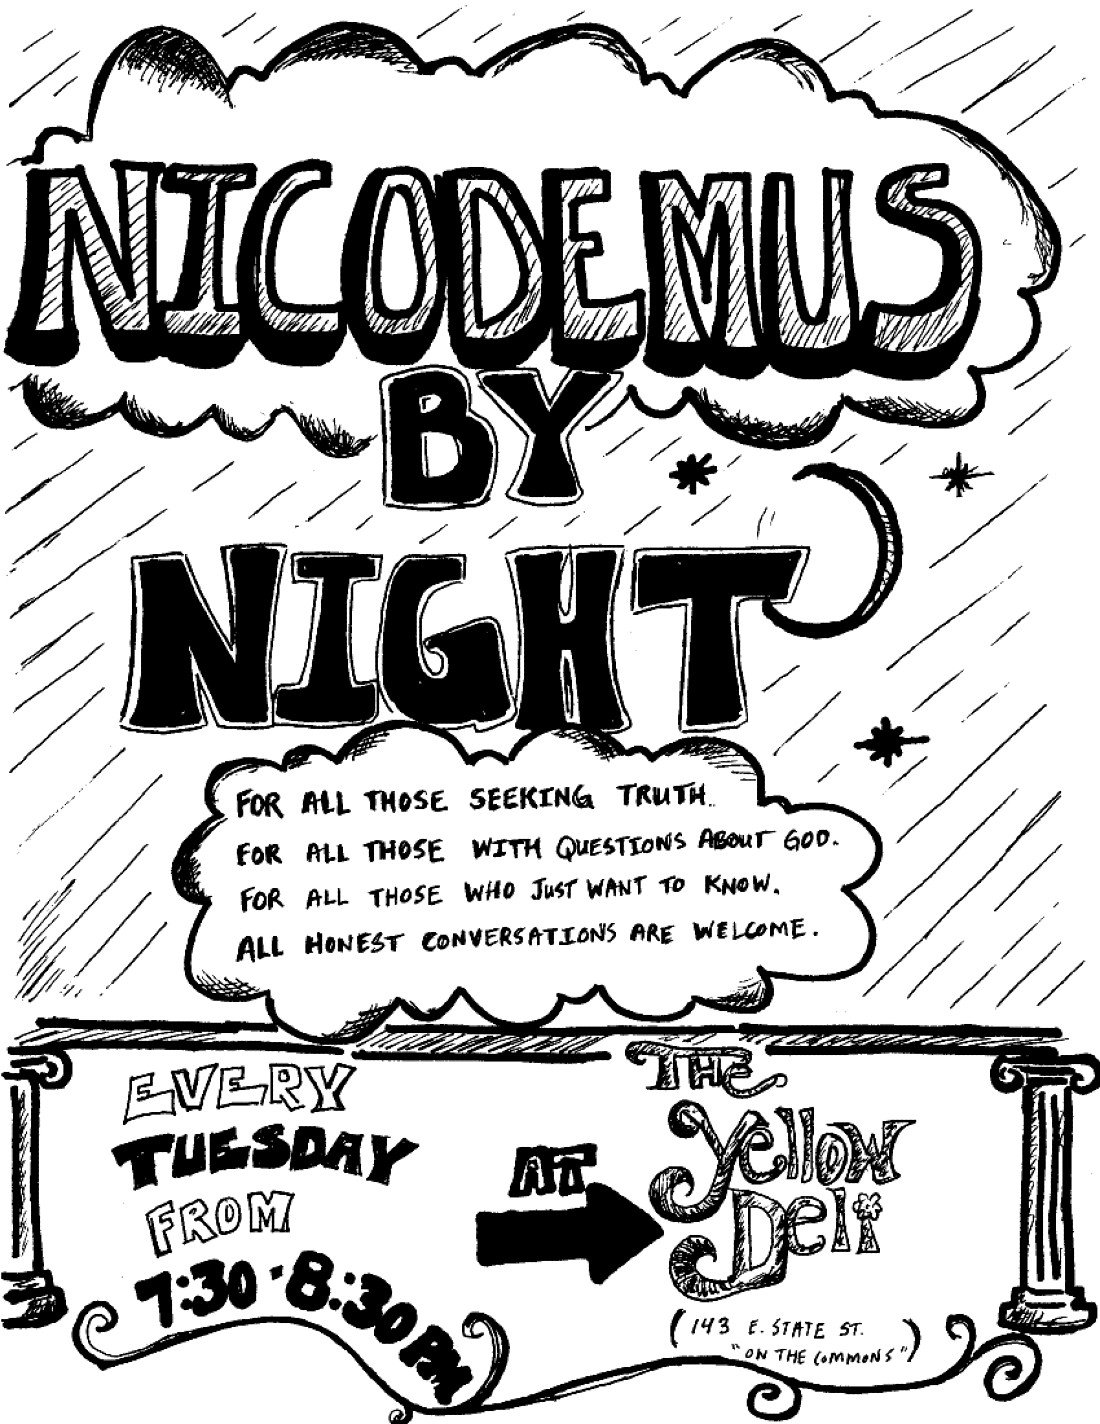 NICODEMUS
BY
NIGHT
FOR ALL THOSE SEEKING TRUTH.
FOR ALL THOSE WITH QUESTIONS ABOUT GOD.
FOR ALL THOSE WHO JUST WANT TO KNOW.
ALL HONEST CONVERSATIONS ARE WELCOME.
EVERY
TUESDAY
FROM
7:30-8:30PM
AT
THe
Yellow
Deli
(143 E. STATE ST.
"ON THE COMMONS")